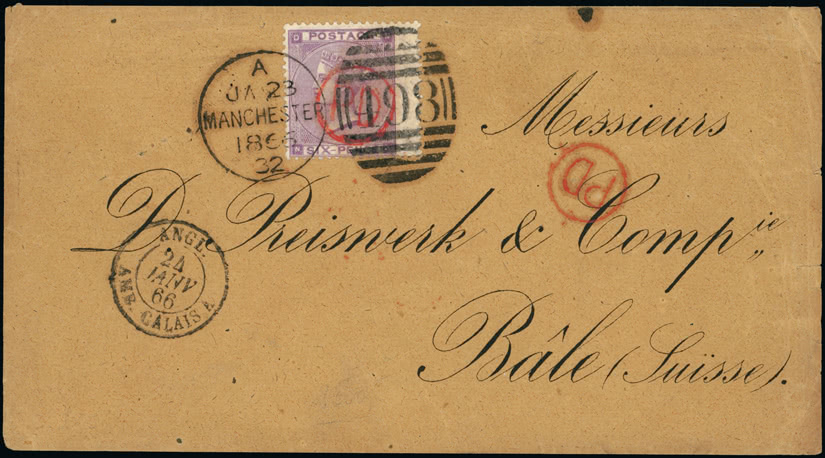 D POSTAGE
N SIX-PENCE
A
JA 23
MANCHESTER
1866
32
498
PD
Messieurs
PD
D. Preiswerk & Comp^ie
Bâle (Suisse).
ANGL.
24
JANV
66
AMB. CALAIS